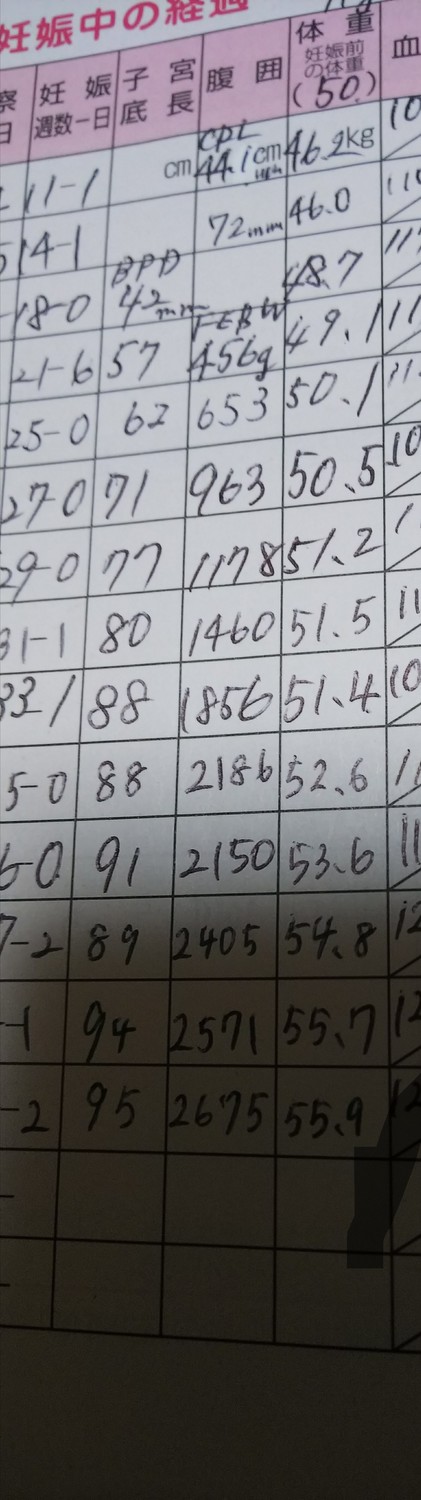 妊娠中の経過
察日 妊娠週数-日 子宮底長 腹囲 体重 妊娠前の体重 (50.) 血
11-1 cm CRL 44.1cm 46.2kg 10
14-1 72mm 46.0 110
18-0 BPD 42mm 48.7 117
21-6 57 FEBW 456g 49.1 11
25-0 62 653 50.1 11
27-0 71 963 50.5 10
29-0 77 1178 51.2 1
31-1 80 1460 51.5 11
33-1 88 1856 51.4 10
5-0 88 2186 52.6 11
6-0 91 2150 53.6 11
7-2 89 2405 54.8 12
-1 94 2571 55.7 12
-2 95 2675 55.9 12